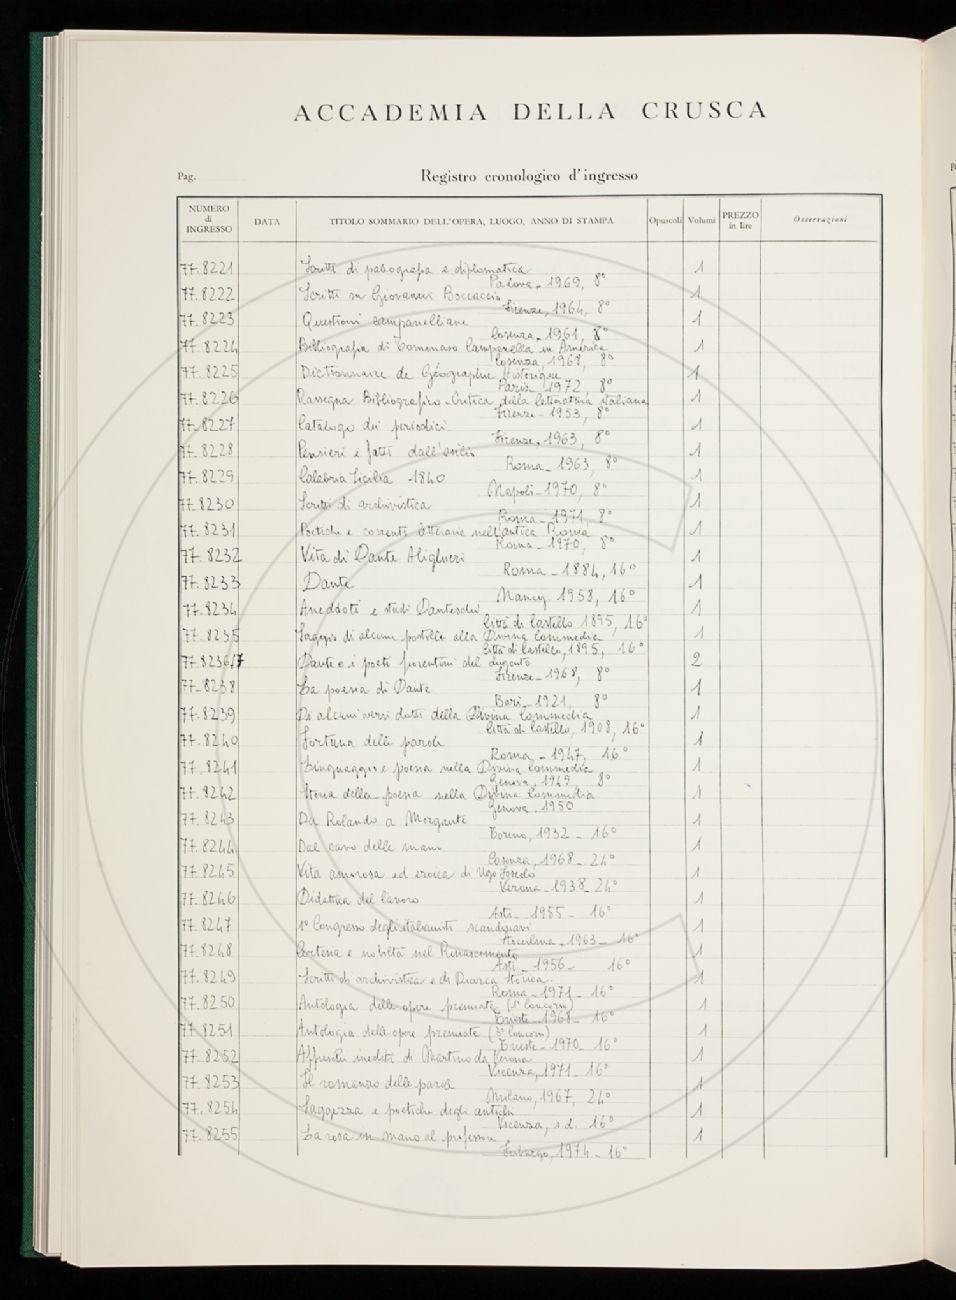 ACCADEMIA DELLA CRUSCA
Pag. Registro cronologico d'ingresso
NUMERO di INGRESSO DATA TITOLO SOMMARIO DELL'OPERA, LUOGO, ANNO DI STAMPA Opuscoli Volumi PREZZO in lire Osservazioni
77.8221 Scritti di paleografia e diplomatica 1
Padova, 1969, 8°
77.8222 Scritti su Giovanni Boccaccio 1
Firenze, 1964, 8°
77.8223 Questioni campanelliane 1
Cosenza, 1961, 8°
77.8224 Bibliografia di Tommaso Campanella in America 1
Cosenza, 1968, 8°
77.8225 Dictionnaire de Géographie Historique 1
Paris 1972, 8°
77.8226 Rassegna Bibliografico-Critica della letteratura italiana 1
Firenze - 1953, 8°
77.8227 Catalogo dei periodici 1
Firenze, 1963, 8°
77.8228 Pensieri e fatti dall'esilio 1
Roma - 1963, 8°
77.8229 Calabria Sicilia 1840 1
Napoli - 1970, 8°
77.8230 Scritti di archivistica 1
Roma - 1971, 8°
77.8231 Poetiche e correnti letterarie nell'antica Roma 1
Roma - 1970, 8°
77.8232 Vita di Dante Alighieri 1
Roma - 1884, 16°
77.8233 Dante 1
Nancy 1958, 16°
77.8234 Aneddoti e studi Danteschi 1
Città di Castello 1895, 16°
77.8235 Saggio di alcune postille alla Divina Commedia 1
Città di Castello, 1895, 16°
77.8236/7 Dante e i poeti fiorentini del dugento 2
Firenze - 1968, 8°
77.8238 La poesia di Dante 1
Bari, 1921, 8°
77.8239 Di alcuni versi dotti della Divina Commedia 1
Città di Castello, 1908, 16°
77.8240 Fortuna delle parole 1
Roma - 1947, 16°
77.8241 Linguaggio e poesia nella Divina Commedia 1
Genova, 1949 8°
77.8242 Storia della poesia nella Divina Commedia 1
Genova, 1950
77.8243 Da Rolando a Morgante 1
Torino, 1932 - 16°
77.8244 Dal cavo delle mani 1
Cosenza, 1968 - 24°
77.8245 Vita amorosa ed eroica di Ugo Foscolo 1
Verona - 1938 - 24°
77.8246 Didattica del lavoro 1
Asti - 1955 - 16°
77.8247 1° Congresso degli italianisti scandinavi 1
1963 - 16°
77.8248 Cortesia e nobiltà nel Rinascimento 1
Asti - 1956 - 16°
77.8249 Scritti di archivistica e di Ricerca Storica. 1
Roma - 1971 - 16°
77.8250 Antologia delle opere premiate (1° Concorso) 1
Trieste - 1968 - 16°
77.8251 Antologia delle opere premiate (3° Concorso) 1
Trieste - 1970 - 16°
77.8252 Affreschi inediti di Martino da Verona 1
Vicenza, 1971 - 16°
77.8253 Il romanzo delle parole 1
Milano, 1967, 24°
77.8254 Saggezza e poetiche degli antichi 1
Vicenza, s.d. 16°
77.8255 La rosa in mano al professore 1
Friburgo, 1974 - 16°